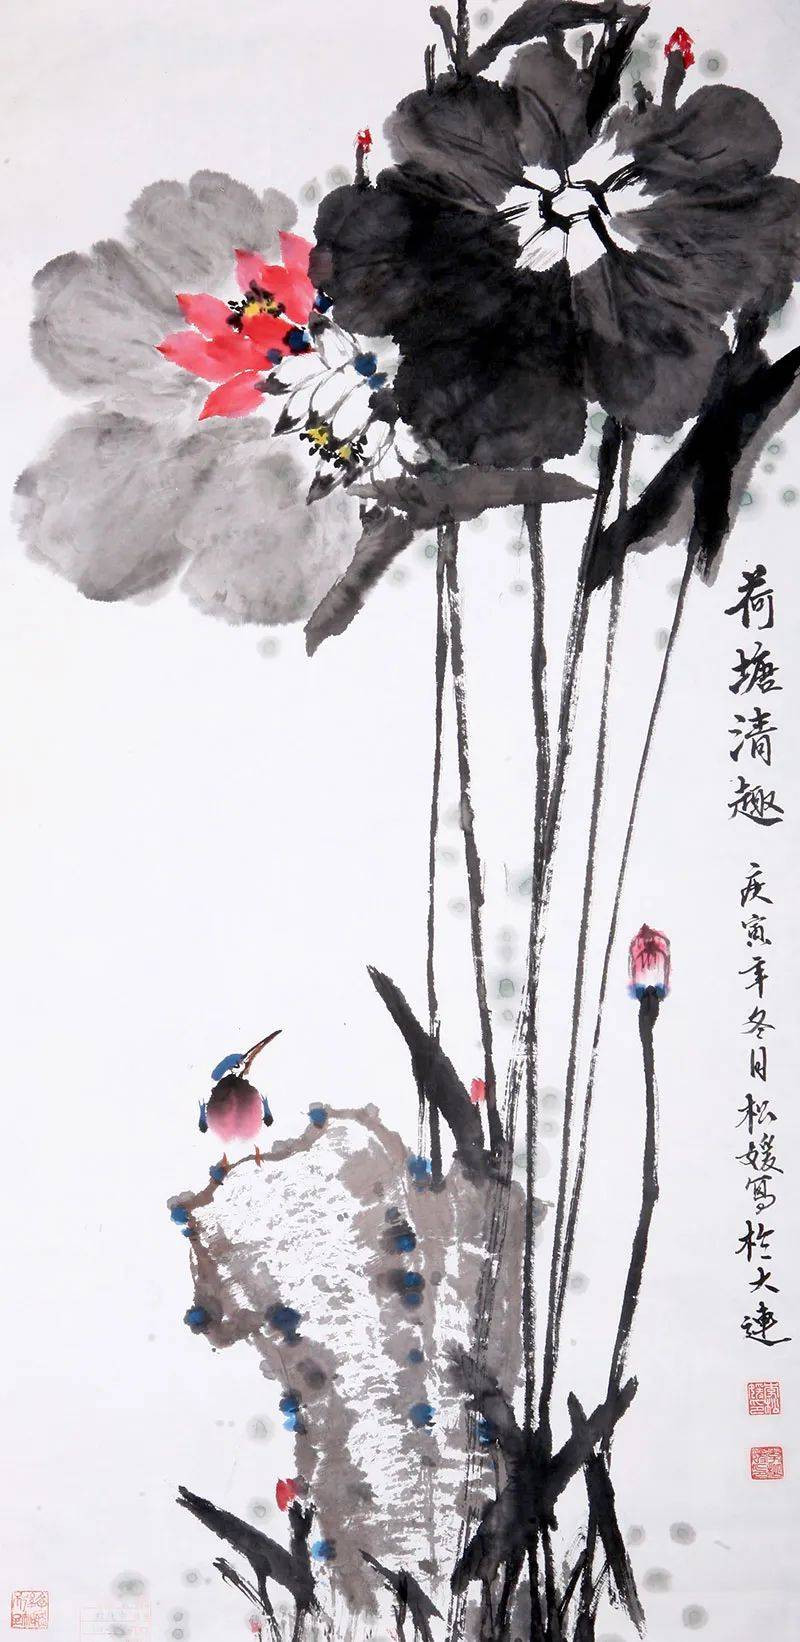 荷塘清趣
庚寅年冬月松媛写於大連